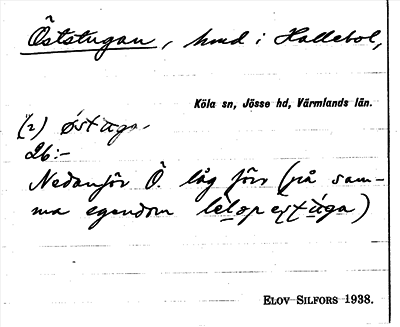 Öststugan, hmd i Hallebol,
Köla sn, Jösse hd, Värmlands län.
(2) östⁱüga.
26:-
Nedanför Ö. låg förr (på sam-
ma egendom
ELOV SILFORS 1938.